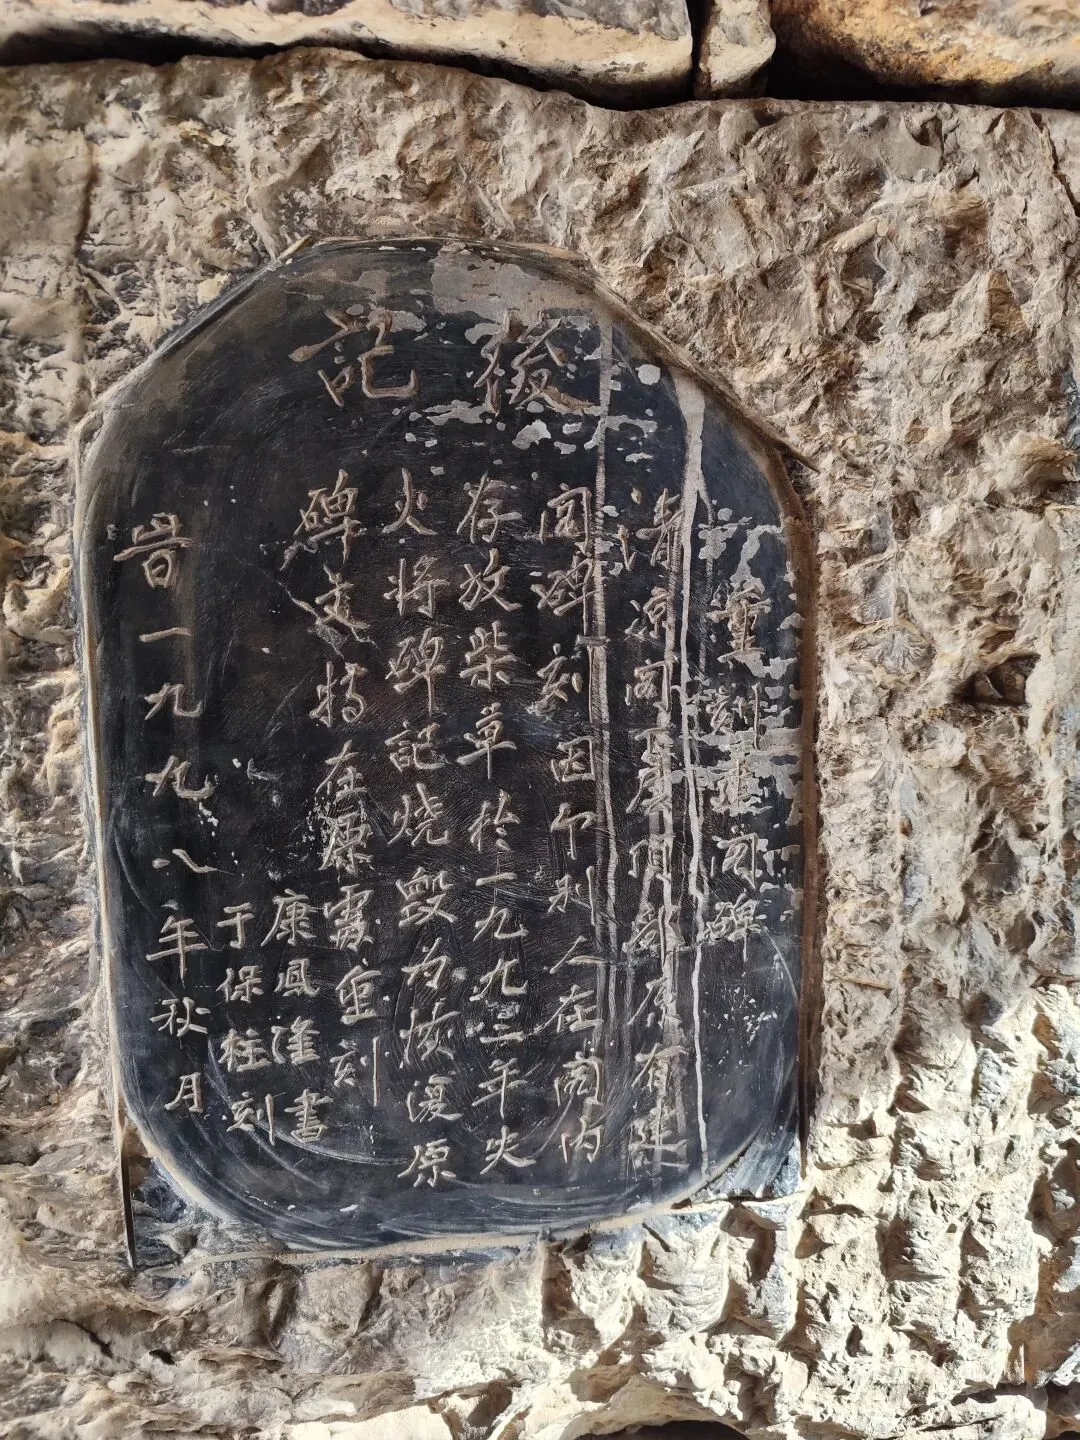 後記
重刻建阁碑
清凉阁底层顶部原有建
阁碑刻因个别人在阁内
存放柴草於一九九三年失
火将碑記烧毁为恢復原
碑文特在原處重刻
康凤隆書
于保柱刻
旹一九九八年秋月